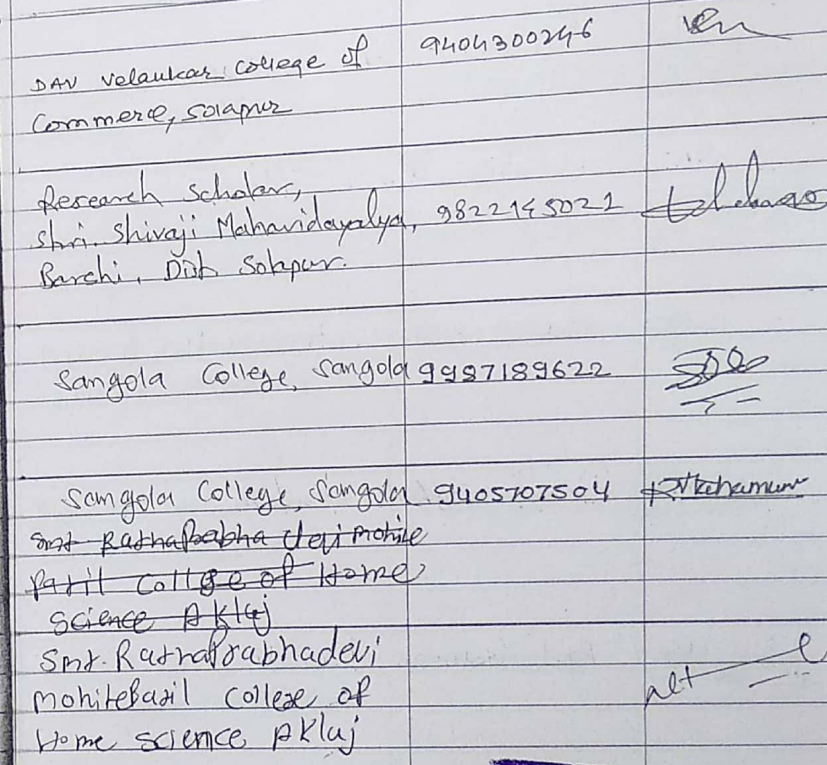 DAV Velankar College of 9404300246
Commerce, Solapur
Research Scholar,
Shri. Shivaji Mahavidayalya, 9822145021
Barshi, Dist Solapur.
Sangola College, Sangola 9987189622
Sangola College, Sangola 9405707504
Smt RatnaPrabha devi mohite
Patil College of Home
Science Akluj
Smt. RatnaPrabhadevi
mohitePatil College of
Home science Akluj